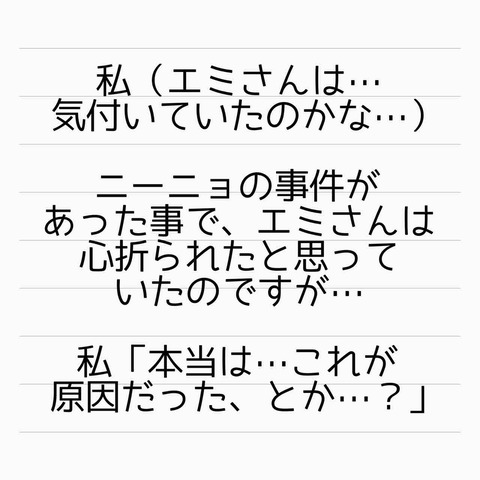 私（エミさんは…
気付いていたのかな…）
ニーニョの事件が
あった事で、エミさんは
心折られたと思って
いたのですが…
私「本当は…これが
原因だった、とか…？」